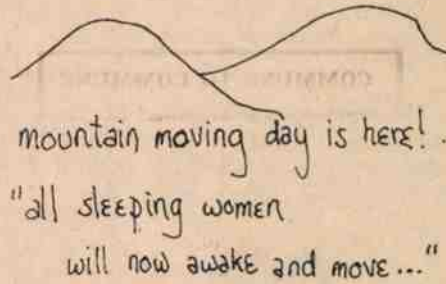 mountain moving day is here!
"all sleeping women
will now awake and move..."